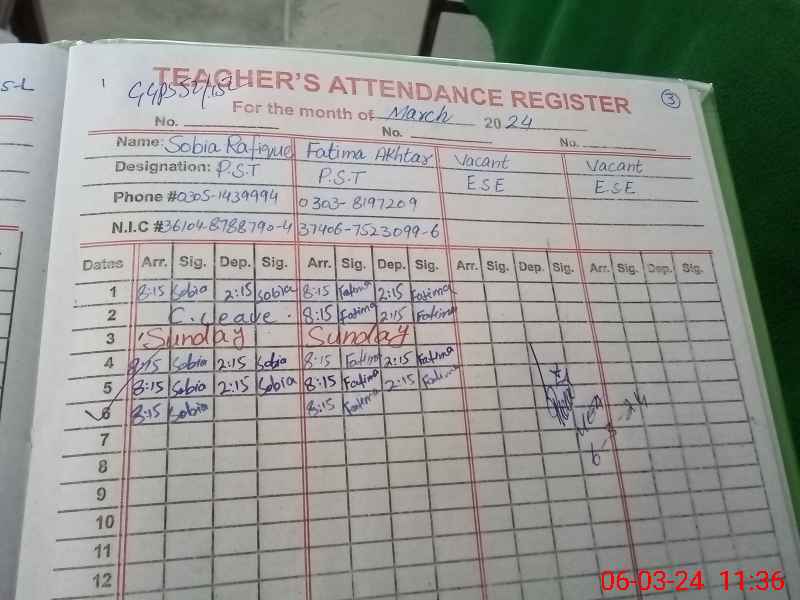 S-L
1 TEACHER'S ATTENDANCE REGISTER 3
For the month of March 2024
No. No. No.
Name: Sobia Rafique Fatima Akhtar Vacant Vacant
Designation: P.S.T P.S.T E.S.E E.S.E
Phone #0305-1439994 0303-8197209
N.I.C #36104-8788790-4 37406-7523099-6
Dates Arr. Sig. Dep. Sig. Arr. Sig. Dep. Sig. Arr. Sig. Dep. Sig. Arr. Sig. Dep. Sig.
1 8:15 Sobia 2:15 Sobia 8:15 Fatima 2:15 Fatima
2 C.Leave. 8:15 Fatima 2:15 Fatima
3 Sunday Sunday
4 8:15 Sobia 2:15 Sobia 8:15 Fatima 2:15 Fatima
5 8:15 Sobia 2:15 Sobia 8:15 Fatima 2:15 Fatima
6 8:15 Sobia 8:15 Fatima
MEA
6-3-24
7
8
9
10
11
12
06-03-24 11:36